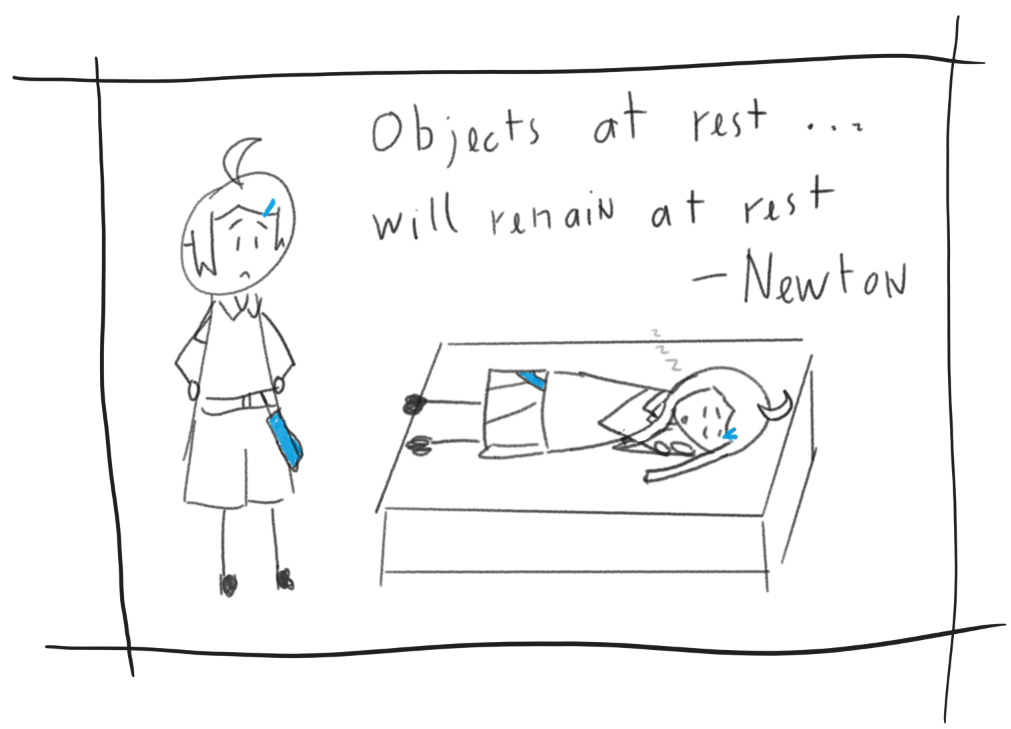 Objects at rest ...
will remain at rest
- Newton
z
z
z